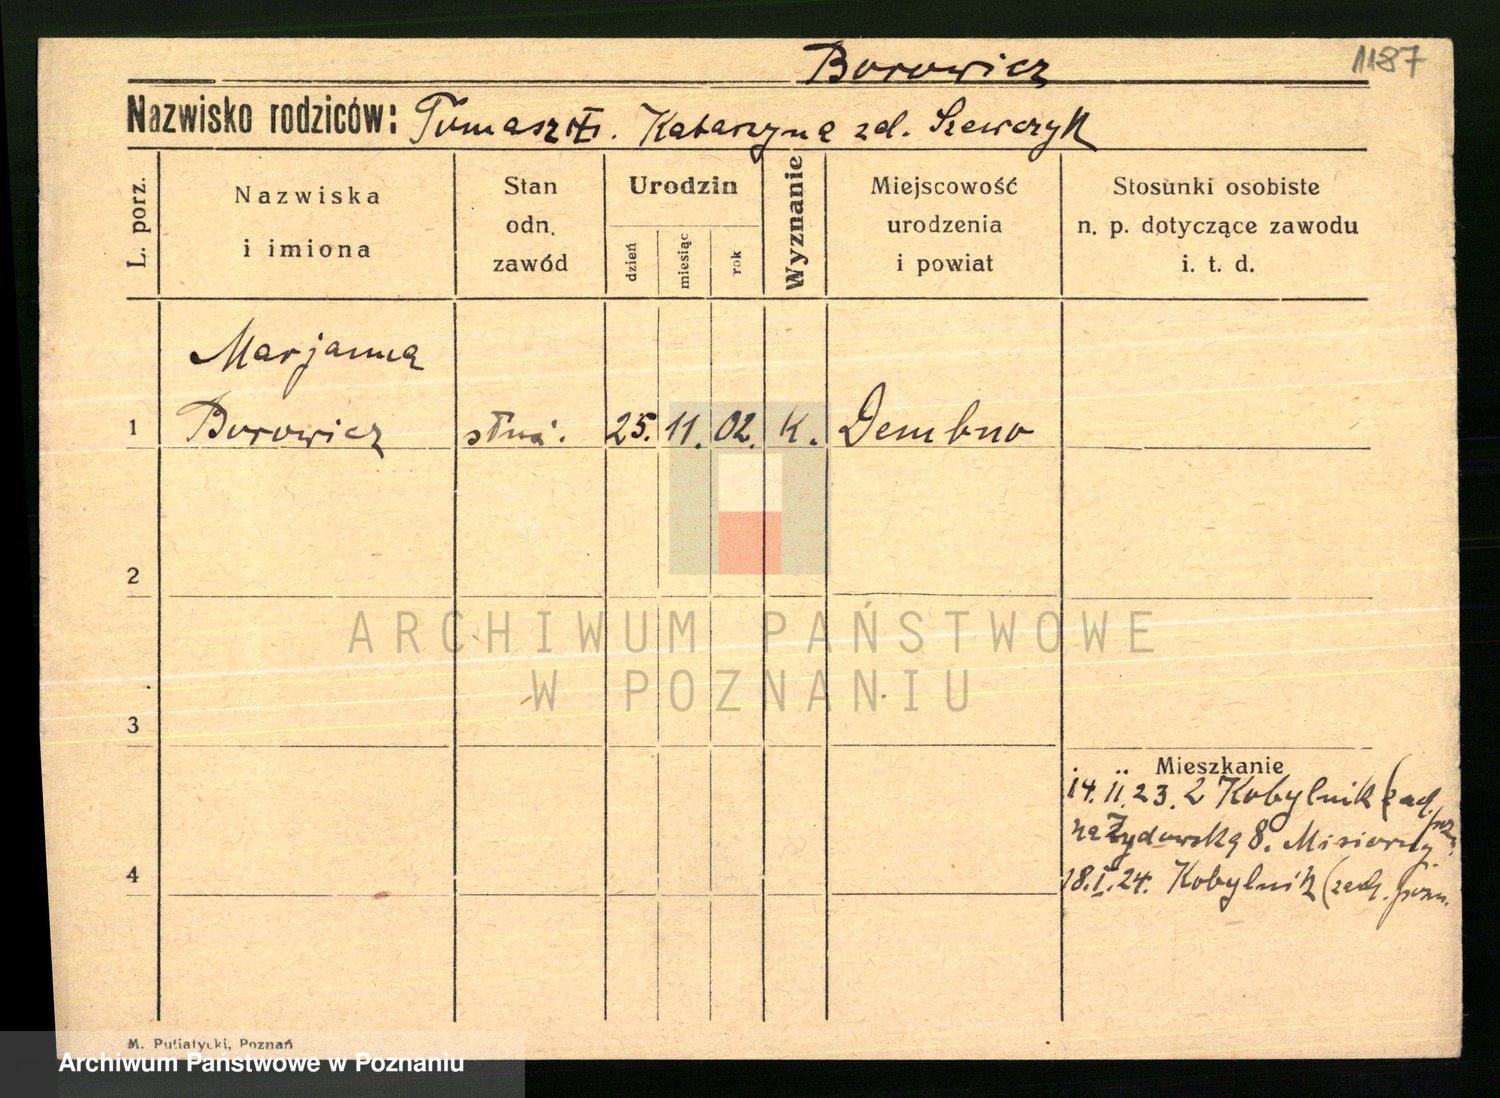 Borowicz
1187
Nazwisko rodziców: Tomasz i. Katarzyna zd. Szewczyk
L. porz.
Nazwiska
i imiona
Stan
odn.
zawód
Urodzin
dzień
miesiąc
rok
Wyznanie
Miejscowość
urodzenia
i powiat
Stosunki osobiste
n. p. dotyczące zawodu
i. t. d.
Marjanna
1 Borowicz służ. 25. 11. 02. K. Dembno
2
ARCHIWUM PAŃSTWOWE
W POZNANIU
3
Mieszkanie
14. II. 23. z Kobylnik (zach. pozn.
na Żydowską 8. Misiorny.
4
18. I. 24. Kobylnik (zach. pozn.
M. Putiatycki, Poznań
Archiwum Państwowe w Poznaniu